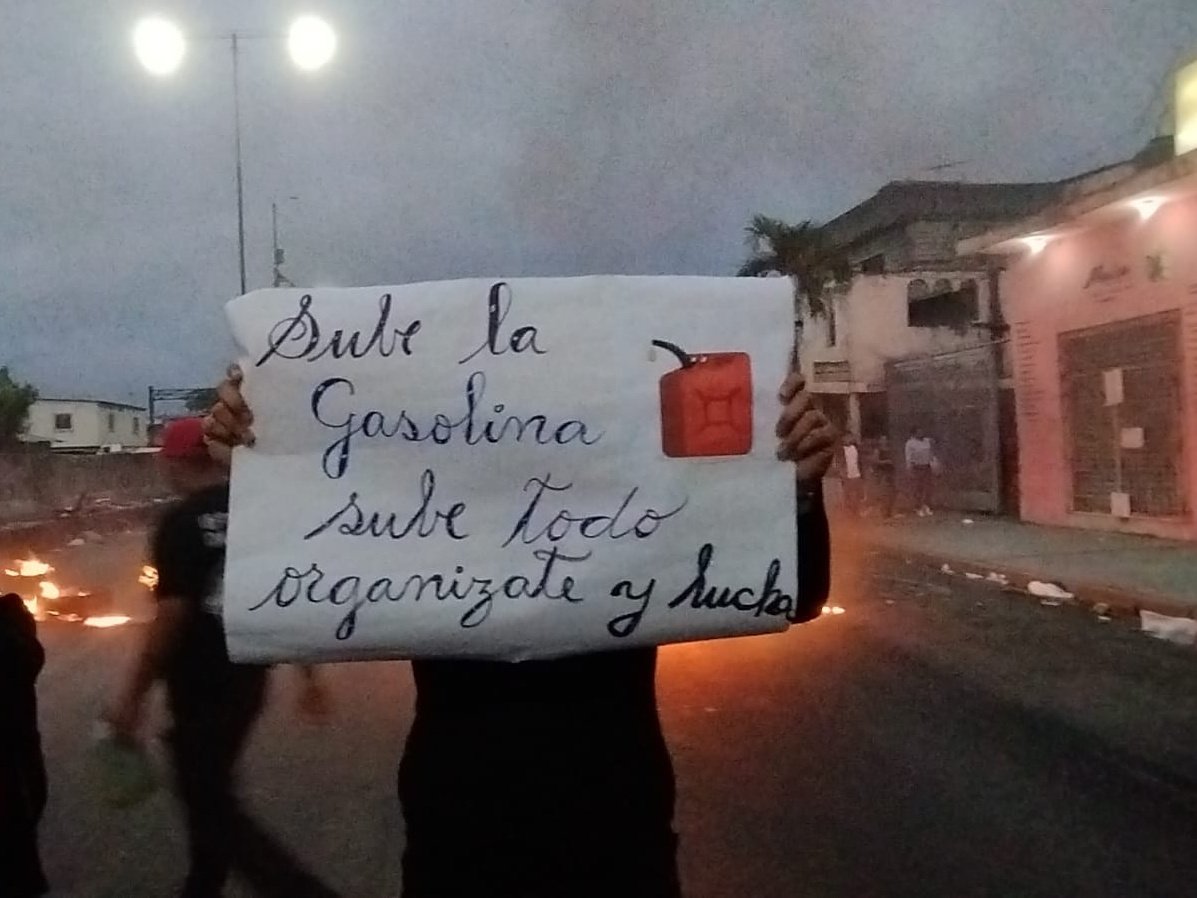 Sube la
Gasolina
sube Todo
organizate y lucha